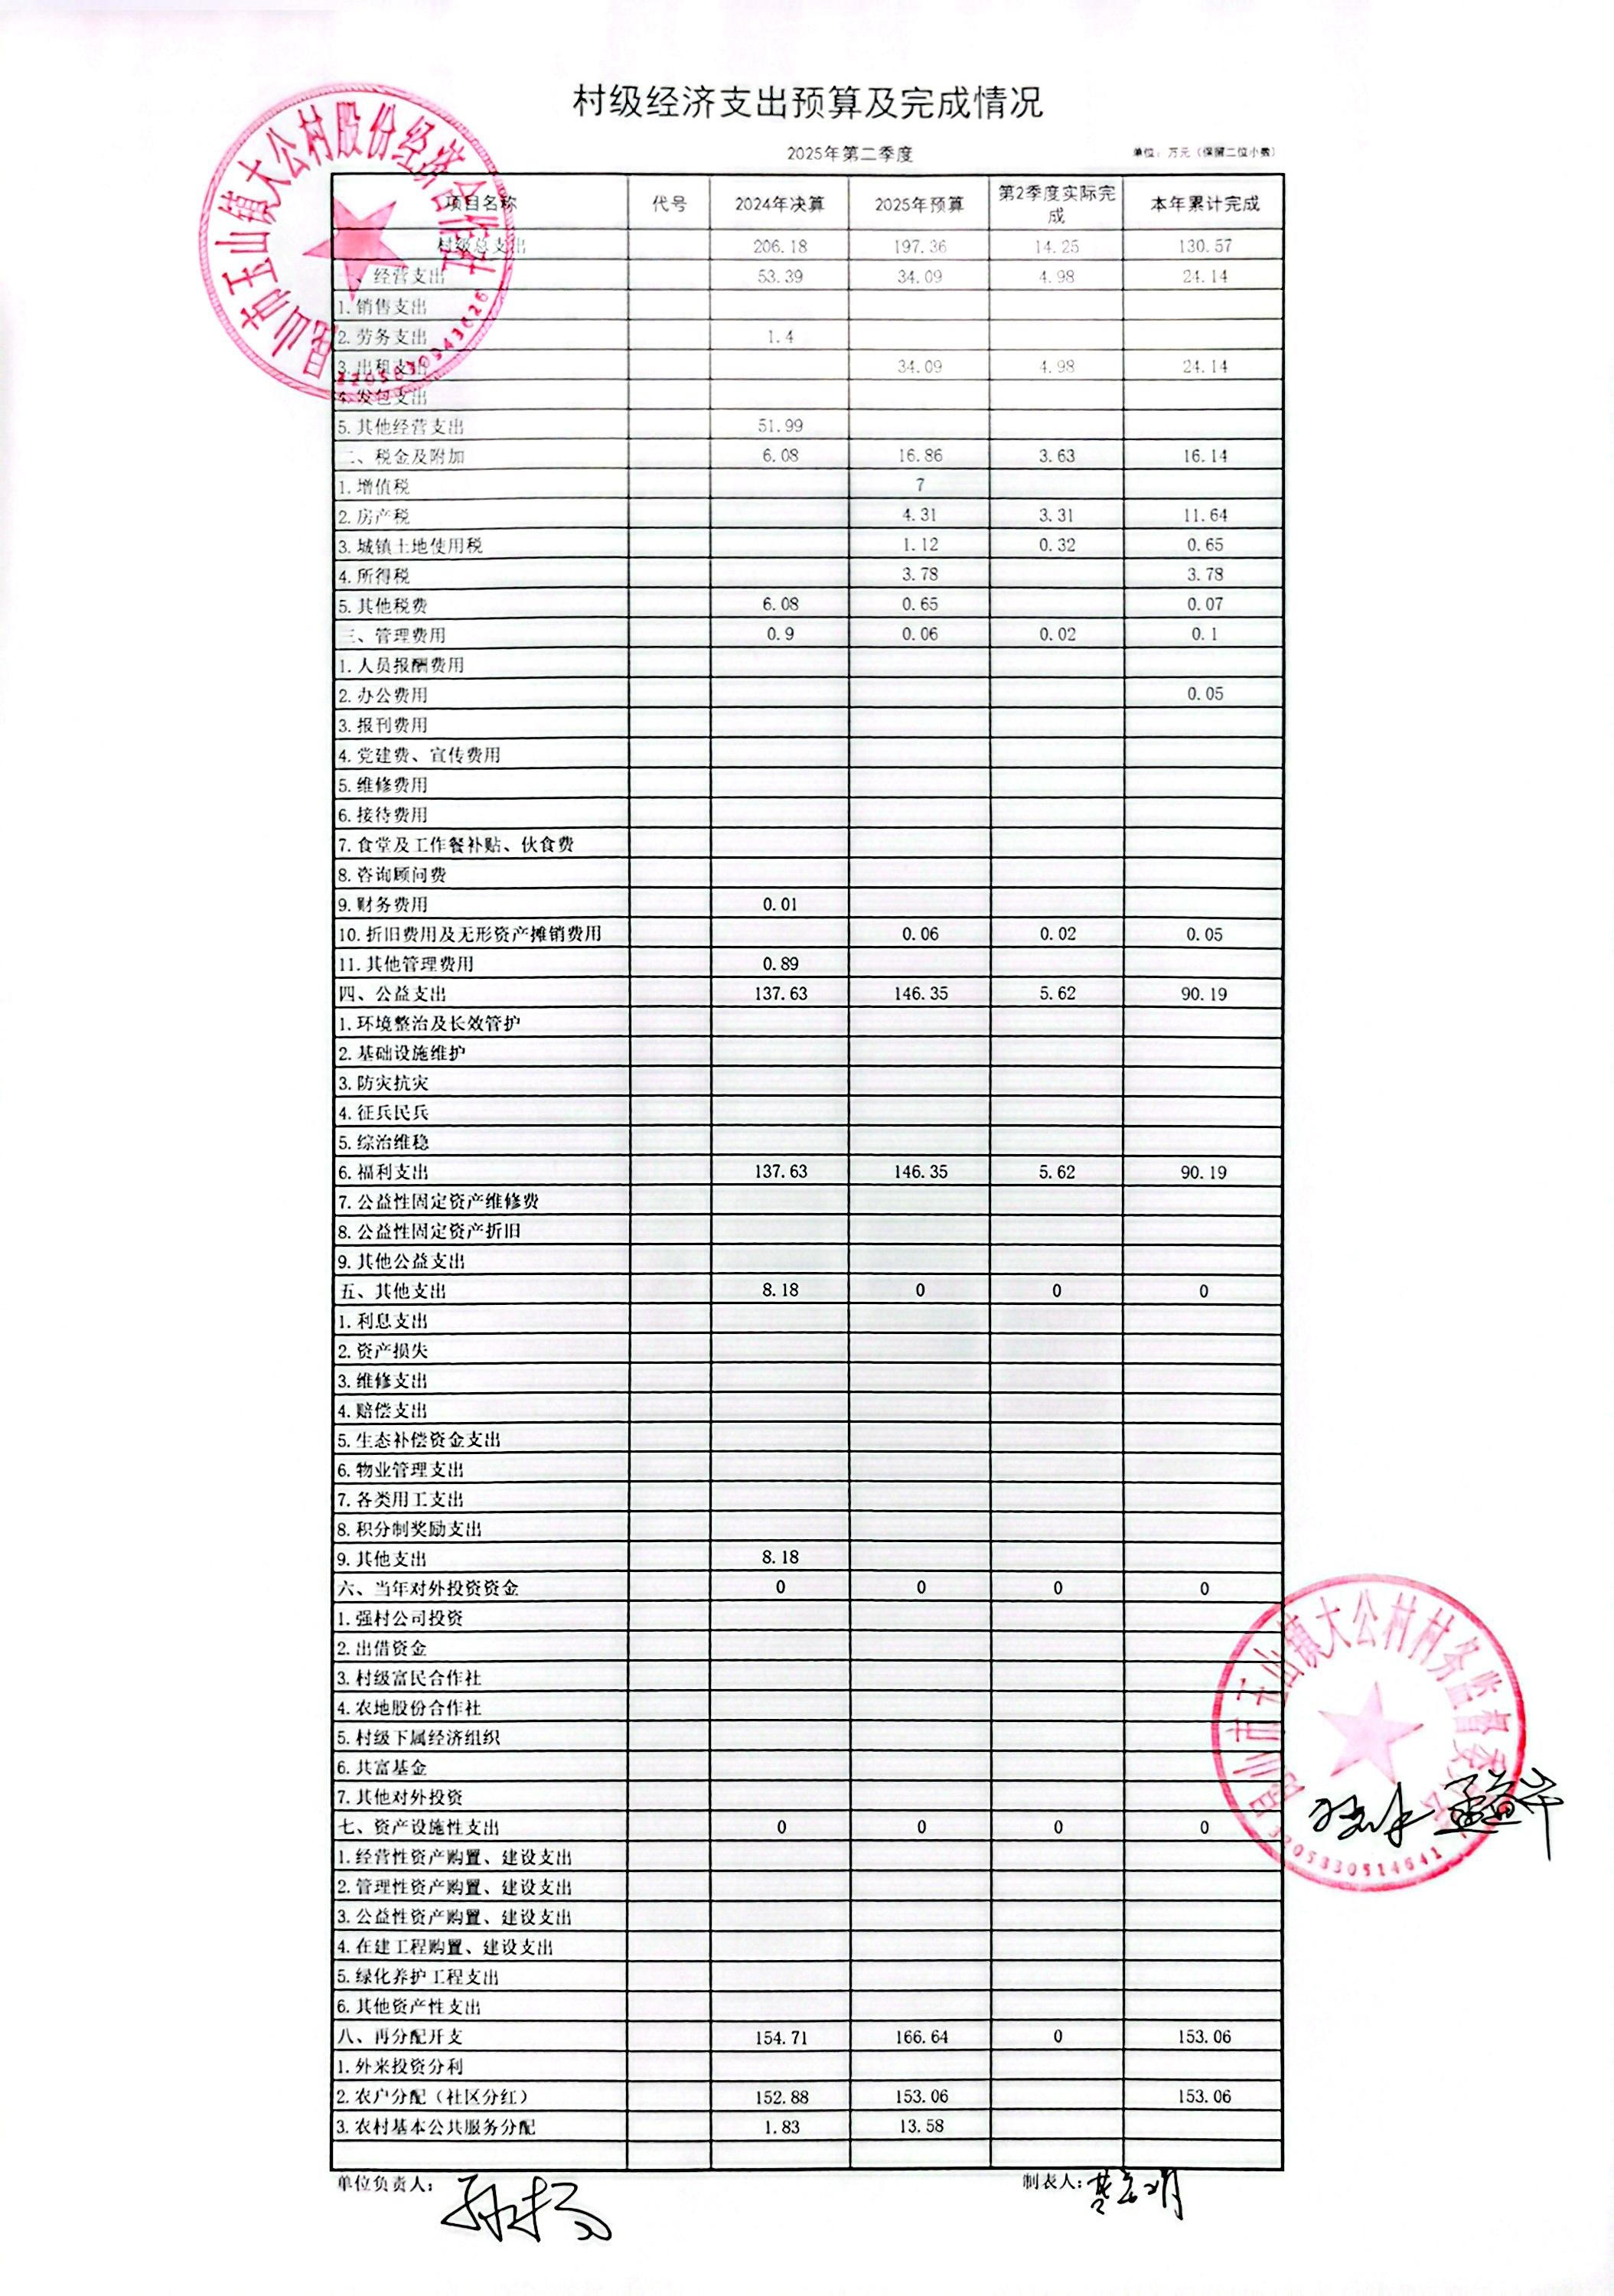 村级经济支出预算及完成情况
2025年第二季度 单位：万元（保留二位小数）
项目名称 代号 2024年决算 2025年预算 第2季度实际完成 本年累计完成
村级总支出 206.18 197.36 14.25 130.57
、经营支出 53.39 34.09 4.98 24.14
1.销售支出
2.劳务支出 1.4
3.出租支出 34.09 4.98 24.14
4.发包支出
5.其他经营支出 51.99
二、税金及附加 6.08 16.86 3.63 16.14
1.增值税 7
2.房产税 4.31 3.31 11.64
3.城镇土地使用税 1.12 0.32 0.65
4.所得税 3.78 3.78
5.其他税费 6.08 0.65 0.07
三、管理费用 0.9 0.06 0.02 0.1
1.人员报酬费用
2.办公费用 0.05
3.报刊费用
4.党建费、宣传费用
5.维修费用
6.接待费用
7.食堂及工作餐补贴、伙食费
8.咨询顾问费
9.财务费用 0.01
10.折旧费用及无形资产摊销费用 0.06 0.02 0.05
11.其他管理费用 0.89
四、公益支出 137.63 146.35 5.62 90.19
1.环境整治及长效管护
2.基础设施维护
3.防灾抗灾
4.征兵民兵
5.综治维稳
6.福利支出 137.63 146.35 5.62 90.19
7.公益性固定资产维修费
8.公益性固定资产折旧
9.其他公益支出
五、其他支出 8.18 0 0 0
1.利息支出
2.资产损失
3.维修支出
4.赔偿支出
5.生态补偿资金支出
6.物业管理支出
7.各类用工支出
8.积分制奖励支出
9.其他支出 8.18
六、当年对外投资资金 0 0 0 0
1.强村公司投资
2.出借资金
3.村级富民合作社
4.农地股份合作社
5.村级下属经济组织
6.共富基金
7.其他对外投资
七、资产设施性支出 0 0 0 0
1.经营性资产购置、建设支出
2.管理性资产购置、建设支出
3.公益性资产购置、建设支出
4.在建工程购置、建设支出
5.绿化养护工程支出
6.其他资产性支出
八、再分配开支 154.71 166.64 0 153.06
1.外来投资分利
2.农户分配（社区分红） 152.88 153.06 153.06
3.农村基本公共服务分配 1.83 13.58
单位负责人： 制表人：
昆山市玉山镇大公村股份经济合作社
昆山市玉山镇大公村村务监督委员会
3205830514641